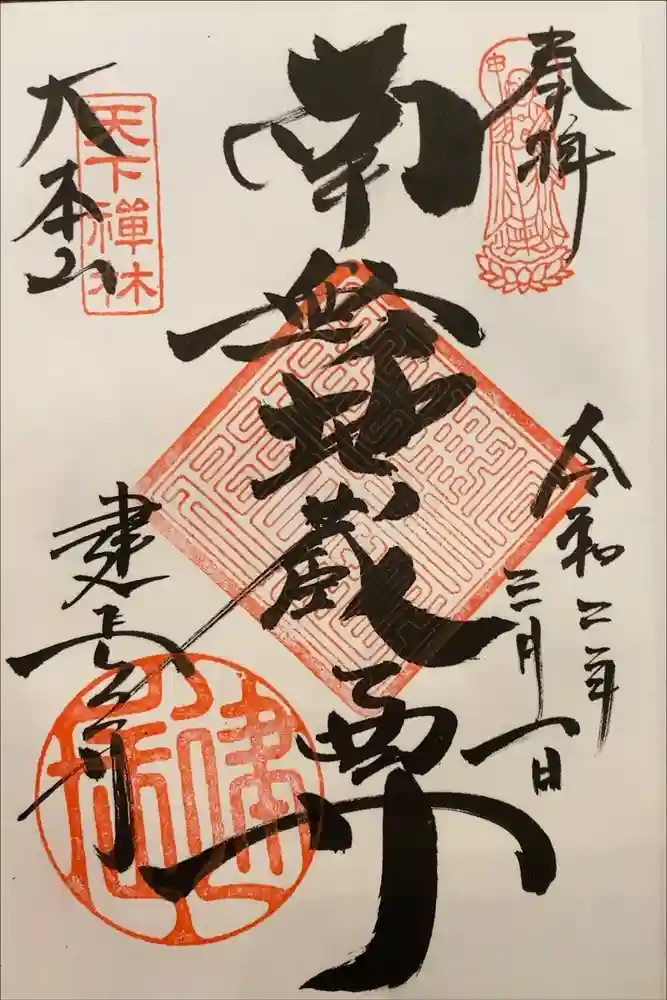 奉拝
令和二年
三月一日
南無地蔵尊
大本山
天下禅林
建長寺